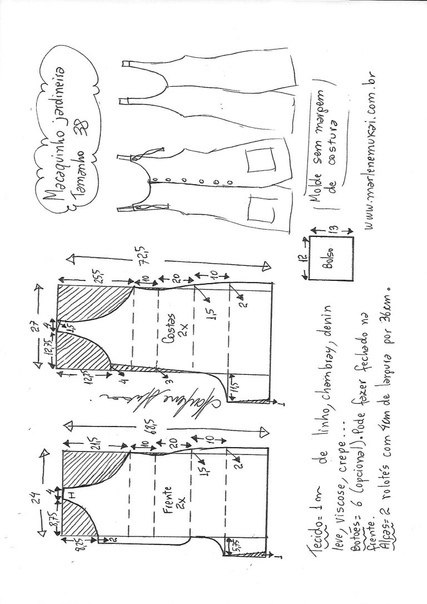 Macaquinho jardineira
Tamanho 38
Molde sem margem
de costura
www.marlenemukai.com.br
72,5
25,5
10
20
10
27
4
12,75
1,5
12,5
4
3
1,5
2
Costas
2x
11,5
1
12
13
Bolso
68,5
21,5
10
20
10
24
4
8,75
H
8,25
2
1,5
2
Frente
2x
5,75
1
Tecido= 1m de linho, chambray, denin
leve, viscose, crepe...
Botões= 6 (opcional). Pode fazer fechado na
frente.
Alças= 2 rolotês com 4cm de largura por 36cm.